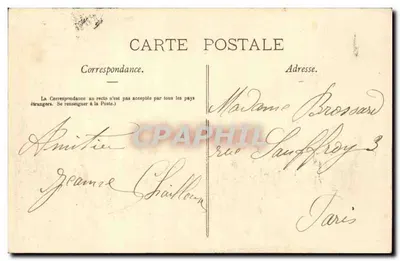 CARTE POSTALE
Correspondance.
La Correspondance au recto n'est pas acceptée par tous les pays
étrangers. (Se renseigner à la Poste.)
Amitiés
Jeanne
Adresse.
Madame Brossard
rue Sauffroy 3
Paris
CPAPHIL